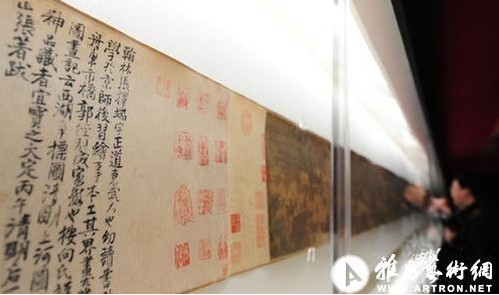 翰林張擇端字正道東武人也幼讀書
學于京師後習繪事本工其界畫尤嗜
舟車市橋郭徑別成家數也按向氏評
圖畫記云西湖爭標圖清明上河圖
神品藏者宜寶之大定丙午清明後一
山張著跋
雅昌藝術網
WWW.ARTRON.NET